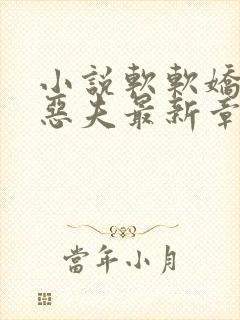 小說軟軟嬌
惡夫最新章
當年小月